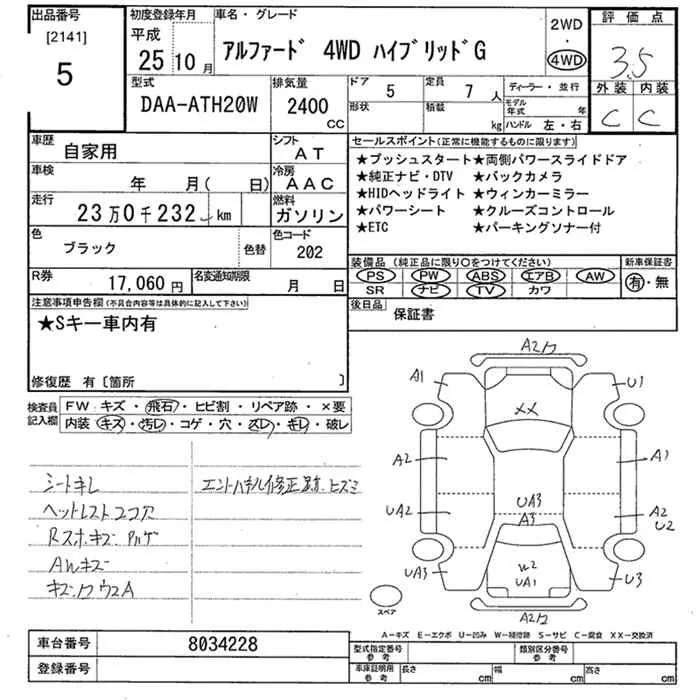 出品番号
[2141]
5
初度登録年月
平成
25年10月
車名・グレード
アルファード 4WD ハイブリッドG
2WD
・
4WD
評価点
3.5
外装 内装
C C
型式
DAA-ATH20W
排気量
2400
CC
ドア
5
定員
7人
形状
積載
kg
ディーラー・並行
モデル年式 年
ハンドル 左・右
車歴
自家用
シフト
AT
車検
年 月( 日)
冷房
AAC
走行
23万0千232 km
燃料
ガソリン
色
ブラック
色替
色コード
202
R券
17,060円
名変通知期限
月 日
セールスポイント(正常に機能するものに限ります)
★プッシュスタート★両側パワースライドドア
★純正ナビ・DTV ★バックカメラ
★HIDヘッドライト★ウィンカーミラー
★パワーシート ★クルーズコントロール
★ETC ★パーキングソナー付
装備品(純正品に限り○をつけてください)
新車保証書
PS PW ABS エアB AW
SR ナビ TV カワ
有・無
後日品
保証書
注意事項申告欄(不具合内容等は具体的に記入して下さい)
★Sキー車内有
修復歴 有〔箇所 〕
検査員記入欄
FW キズ・飛石・ヒビ割・リペア跡・×要
内装 キズ・汚レ・コゲ・穴・ズレ・キレ・破レ
シートキレ
ヘッドレストココ穴
AWキズ
エンドパネル修正跡.ヒズミ
A2
A1
U1
XX
A2
A1
UA2
UA3
A3
A2
U2
UA3
W2
UA1
U3
A2
スペア
A-キズ E-エクボ U-凹み W-補修跡 S-サビ C-腐食 XX-交換済
車台番号
8034228
登録番号
型式指定番号
参考
類別区分番号
参考
車庫証明用
参考
長さ
cm
幅
cm
高さ
cm